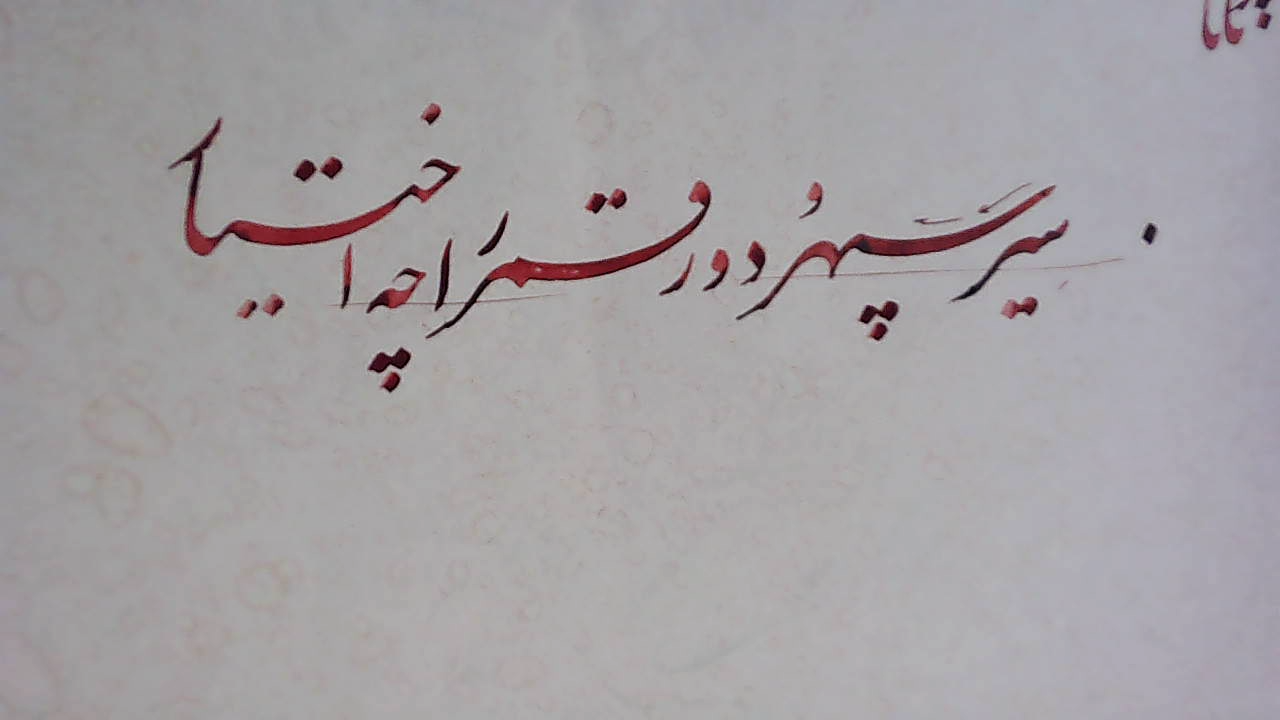 سیر سپهر و دور قمر را چه اختیار